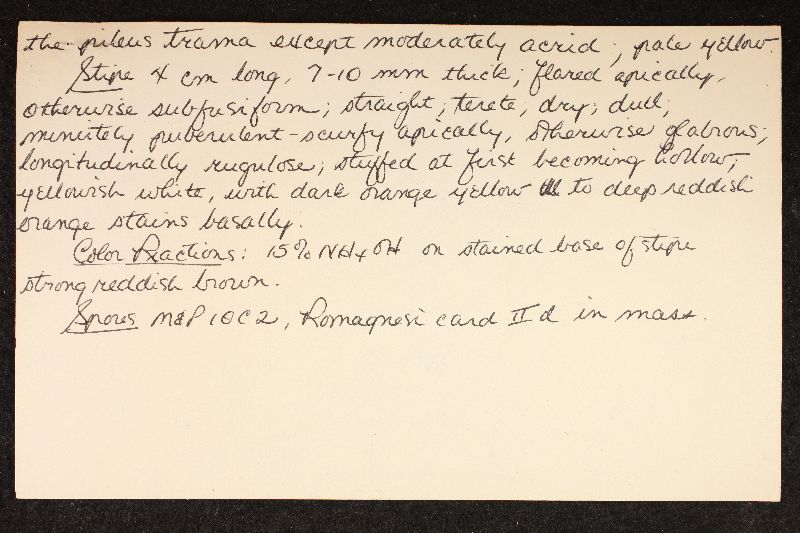 the pileus trama except moderately acrid; pale yellow.
Stipe 4 cm long, 7-10 mm thick; flared apically,
otherwise subfusiform; straight; terete; dry; dull;
minutely puberulent-scurfy apically, otherwise glabrous;
longitudinally rugulose; stuffed at first becoming hollow;
yellowish white, with dark orange yellow to deep reddish
orange stains basally.
Color Reactions: 15% NH4OH on stained base of stipe
strong reddish brown.
Spores M&P 10C2, Romagnesi card II d in mass.